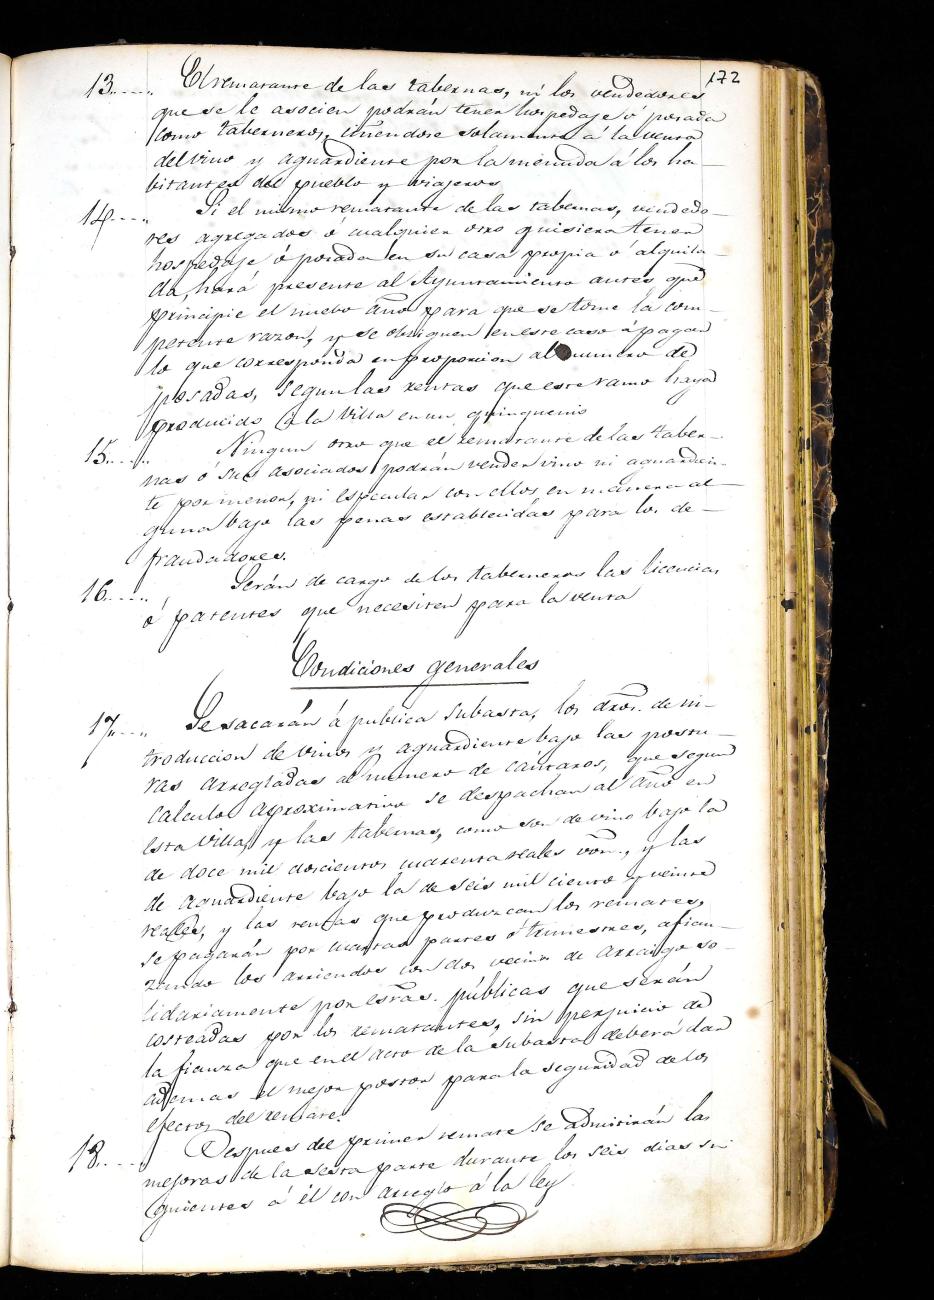 172
13..... El rematante de las tabernas, ni los vendedores
que se le asocien podrán tener hospedaje ó posada
como taberneros, ciñendose solamente á la venta
del vino y aguardiente por la menuda á los ha-
bitantes del pueblo y viajeros
14.... Si el mismo rematante de las tabernas, vendedo-
res agregados ó cualquier otro quisiera tener
hospedaje ó posada en su casa propia ó alquila-
da, hará presente al Ayuntamiento antes que
principie el nuebo año para que se tome la com-
petente razon, y se obliguen en este caso á pagar
lo que corresponda en proporcion al numero de
posadas, segun las rentas que este ramo haya
producido á la Villa en un quinquenio
15..... Ningun otro que el rematante de las taber-
nas ó sus asociados podrán vender vino ni aguardien-
te por menor, ni especular con ellos en manera al-
guna bajo las penas establecidas para los de-
fraudadores.
16..... Serán de cargo de los taberneros las licencias
ó patentes que necesiten para la venta
Condiciones generales
17..... Se sacarán á publica subasta, los dros. de in-
troduccion de vinos y aguardiente bajo las postu-
ras arregladas al numero de cántaros, que segun
calculo aproximativo se despachan al año en
esta Villa, y las tabernas, como son de vino bajo la
de doce mil doscientos cuarenta reales von., y las
de aguardiente bajo la de seis mil ciento y veinte
reales, y las rentas que produzcan los remates,
se pagarán por cuartas partes ó trimestres, afian-
zando los arriendos con dos vecinos de arraigo so-
lidariamente por esras. públicas que serán
costeadas por los rematantes, sin perjuicio de
la fianza que en el acto de la subasta deberá dar
ademas el mejor postor para la seguridad de los
efectos del remate.
18..... Despues del primer remate se admitirán las
mejoras de la sesta parte durante los seis dias si-
guientes á él con arreglo á la ley